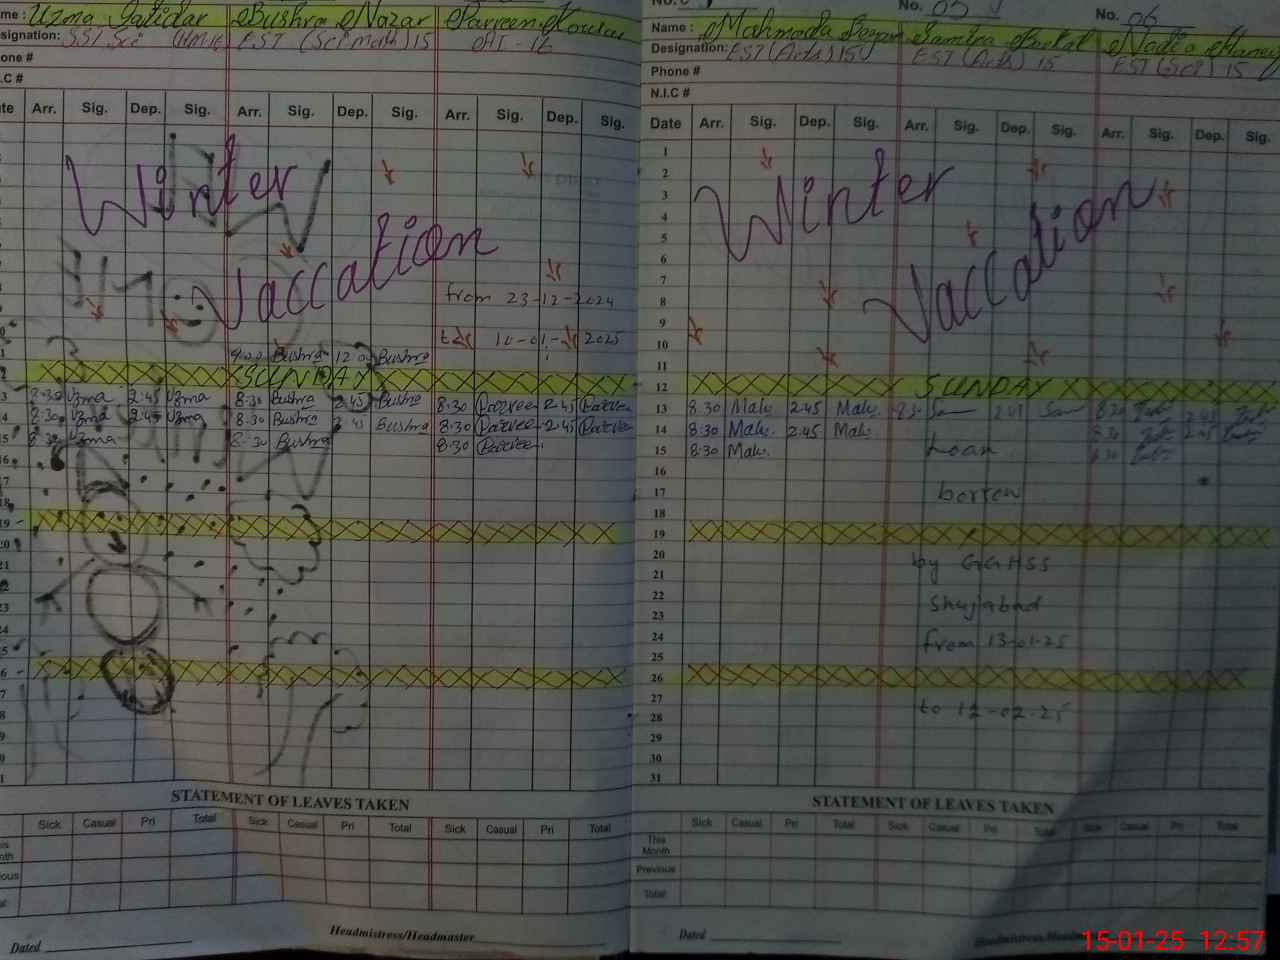 No. 05
No. 06
Name : Uzma Bushra Nazar Parveen
signation: SST Sci EST (Sci Math) 15
one #
.C #
Arr. Sig. Dep. Sig. Arr. Sig. Dep. Sig. Arr. Sig. Dep. Sig.
Winter
Vaccation
from 23-12-2024
to 10-01-2025
9:00 Bushra 12:00 Bushra
SUNDAY
8:30 Uzma 2:45 Uzma 8:30 Bushra 2:45 Bushra 8:30 Parveen 2:45 Parveen
8:30 Uzma 2:45 Uzma 8:30 Bushra 2:45 Bushra 8:30 Parveen 2:45 Parveen
8:30 Uzma 8:30 Bushra 8:30 Parveen
STATEMENT OF LEAVES TAKEN
Sick Casual Pri Total Sick Casual Pri Total Sick Casual Pri Total
Dated
Headmistress/Headmaster
Name : Mahmooda Samina Nadia
Designation: EST (Arts) 15 EST (Arts) 15 EST (Sci) 15
Phone #
N.I.C #
Date Arr. Sig. Dep. Sig. Arr. Sig. Dep. Sig. Arr. Sig. Dep. Sig.
1
2
3
4
5
6
7
8
9
10
11
Winter
Vaccation
12 SUNDAY
13 8:30 Mah. 2:45 Mah.
14 8:30 Mah. 2:45 Mah.
15 8:30 Mah. Loan
16
17 borrow
18
19
20 by GGHSS
21
22
23 Shujabad
24 from 13-01-25
25
26
27
28 to 12-02-25
29
30
31
STATEMENT OF LEAVES TAKEN
Sick Casual Pri Total Sick Casual Pri Total Sick Casual Pri Total
This Month
Previous
Total
Dated
Headmistress/Headmaster
15-01-25 12:57